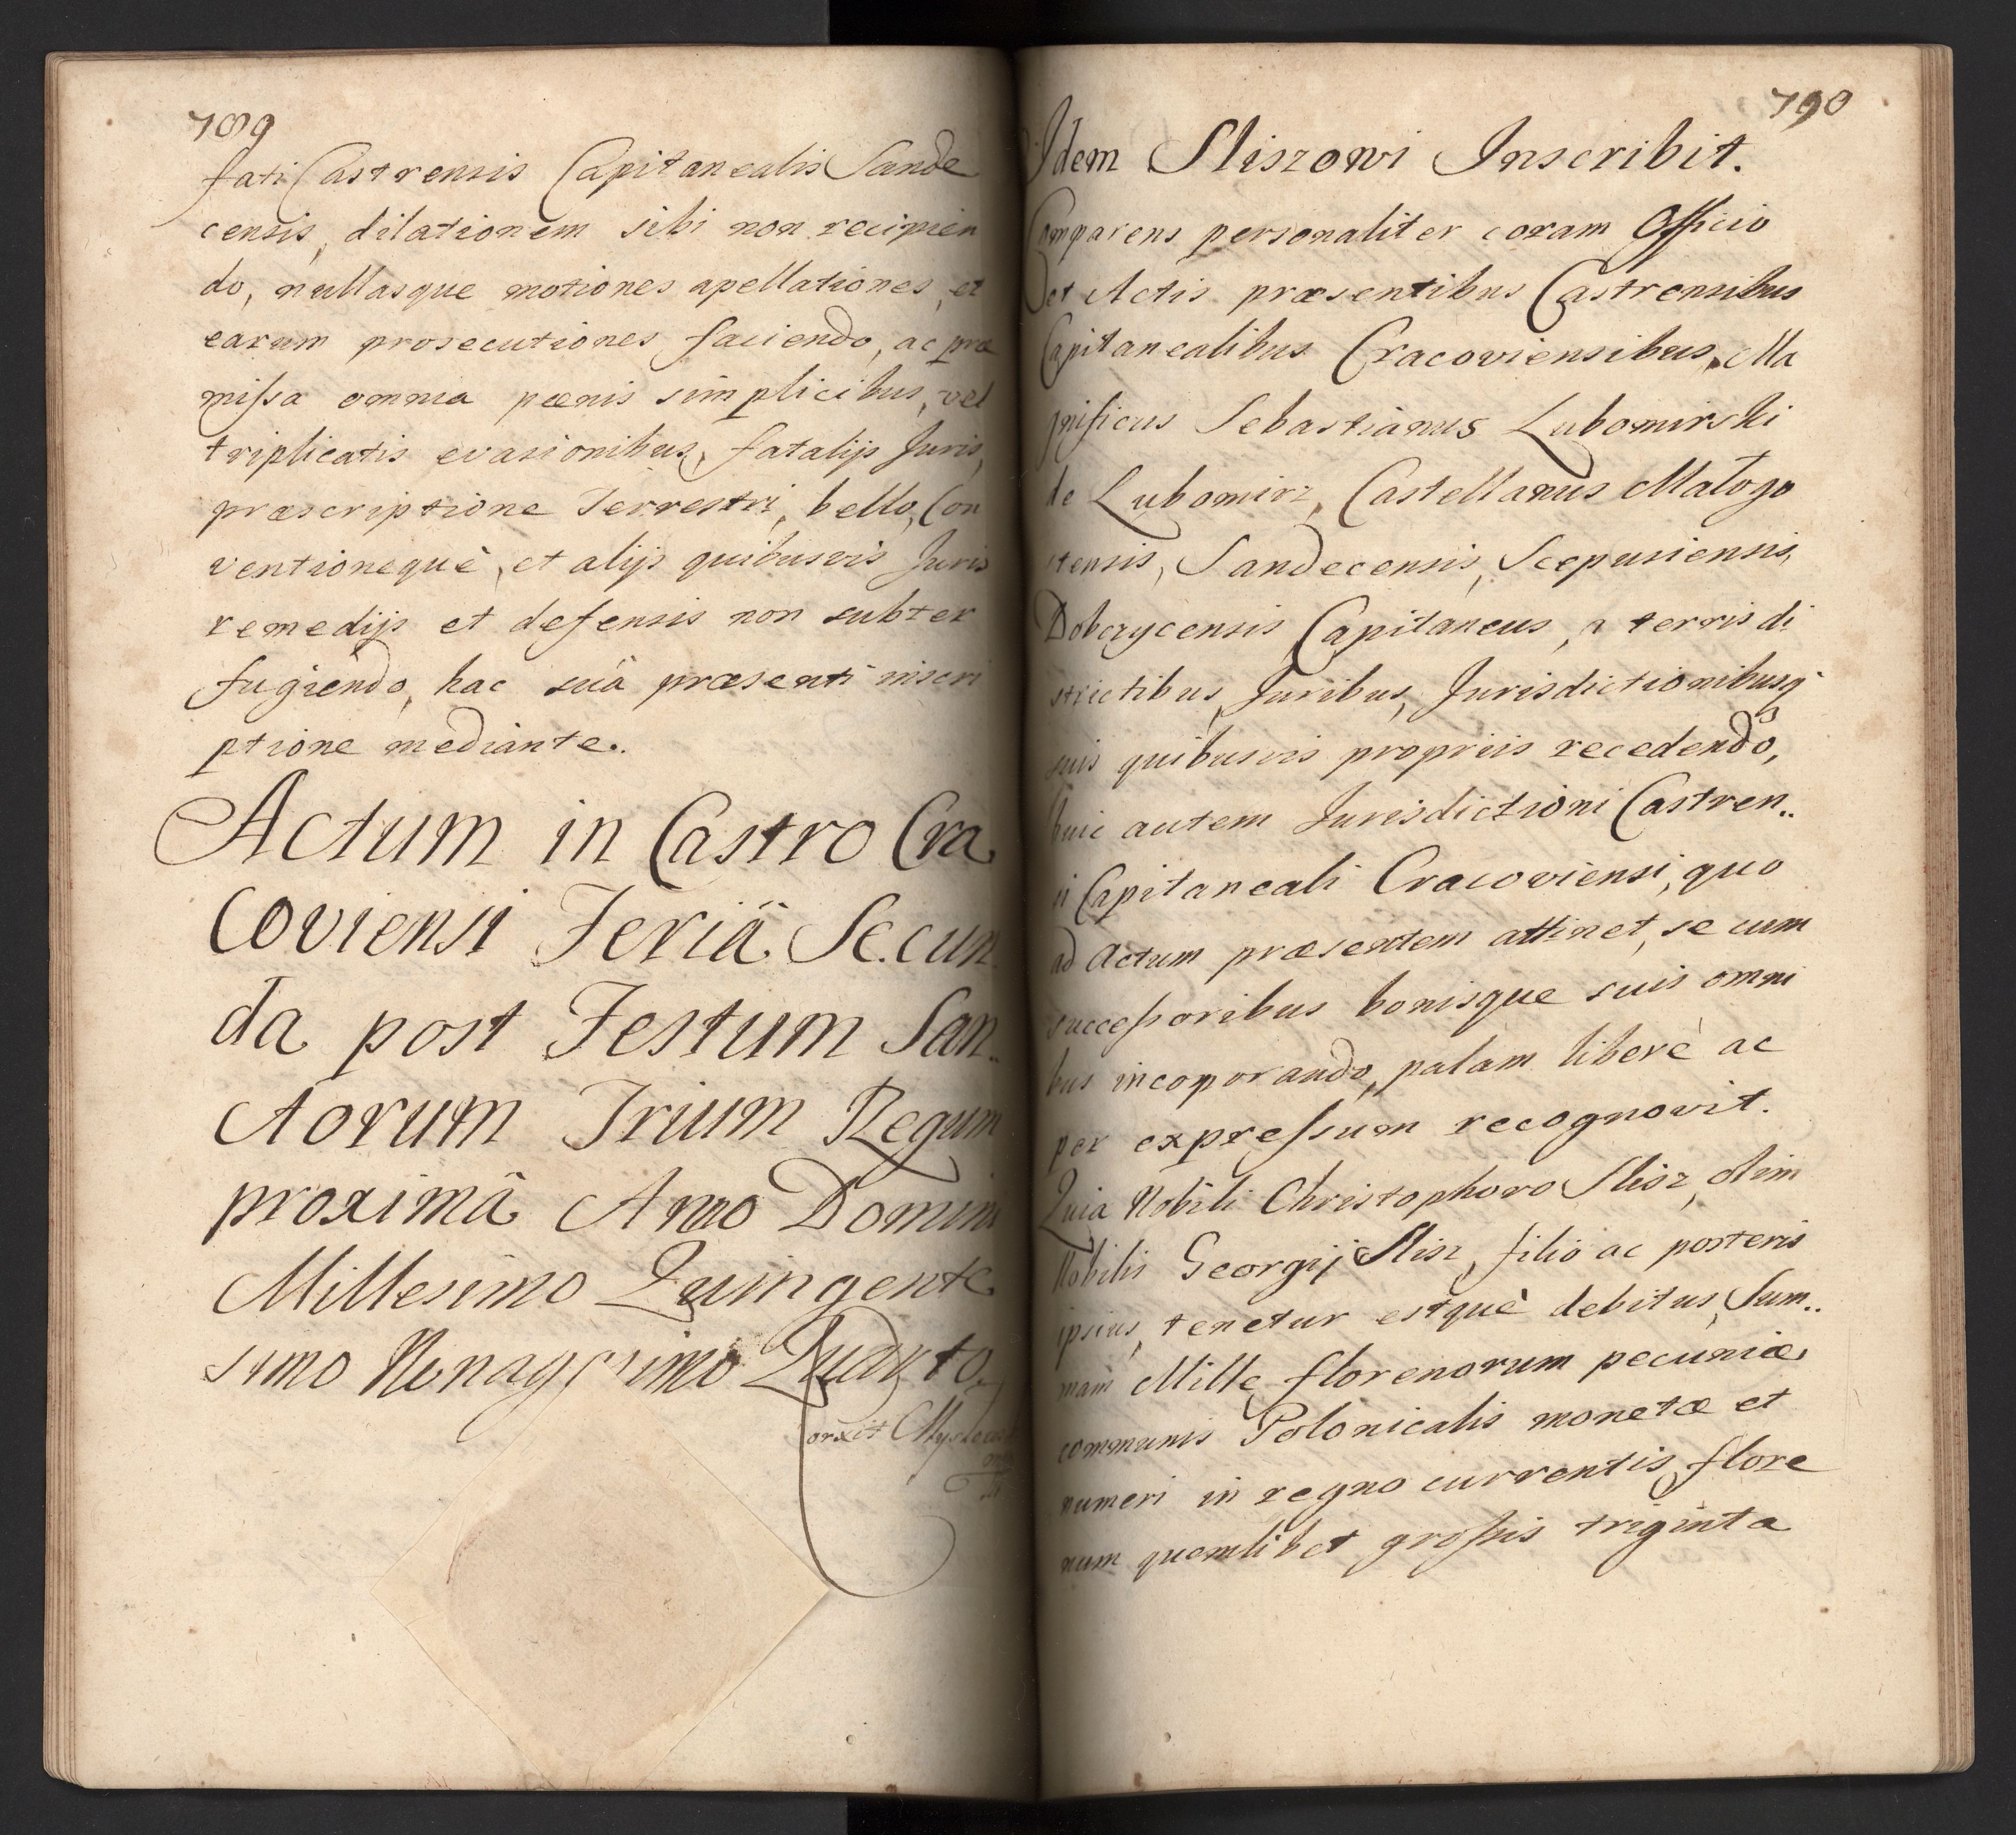 789
fati Castrensis Capitanealis Sande
censis, dilationem sibi non recipien
do, nullasque motiones apellationes, et
earum prosecutiones faciendo, ac præ
missa omnia pœnis simplicibus, vel
triplicatis evasionibus, fatalijs Juris,
præscriptione Terrestri, bello, Con
ventionequè, et alijs quibusvis Juris
remedijs et defensis non subter
fugiendo, hac suâ præsenti inscri
ptione mediante..
Actum in Castro Cra
coviensi Feriâ Secun
da post Festum San
ctorum Trium Regum
proximâ Anno Domini
Millesimo Quingente
simo Nonagesimo Quarto
790
Idem Sliszowi Inscribit.
Comparens personaliter coram Officio
et Actis præsentibus Castrensibus
Capitanealibus Cracoviensibus, Ma
gnificus Sebastianus Lubomirski
de Lubomirz, Castellanus Małogo
stensis, Sandecensis, Scepusiensis,
Dobczycensis Capitaneus, a terris di
strictibus, Juribus, Jurisdictionibusq
suis quibusvis propriis recedendo,
huic autem Jurisdictioni Castren..
si Capitaneali Cracoviensi, quo
ad Actum præsentem attinet, se cum
successoribus bonisque suis omni
bus incoporando, palam liberè ac
per expressum recognovit.
Quia Nobili Christophoro Slisz, olim
Nobilis Georgij Slisz, filio ac posteris
ipsius, tenetur estquè debitus, Sum..
mam Mille florenorum pecuniæ
communis Polonicalis monetæ et
numeri in regno currentis, flore
num quemlibet grossis triginta